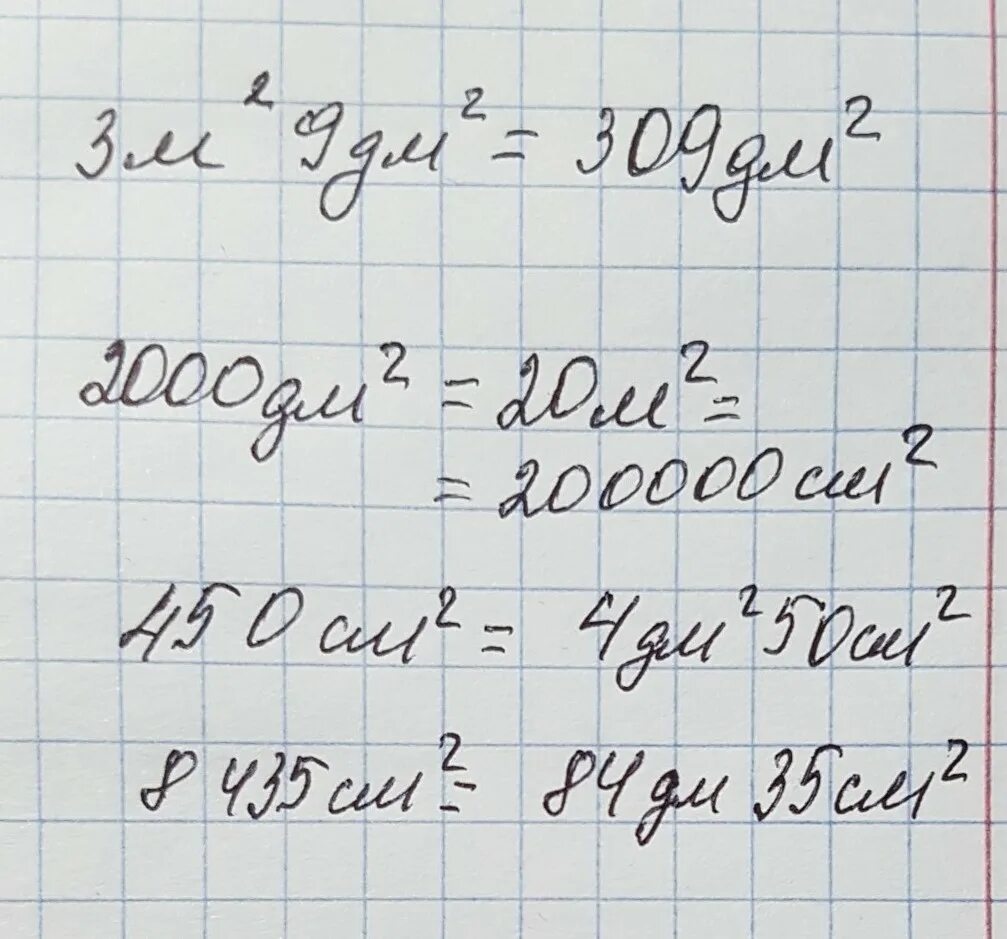 3м² 9дм² = 309дм²
2000дм² = 20м² =
= 200000см²
450см² = 4дм² 50см²
8 435см² = 84дм 35см²